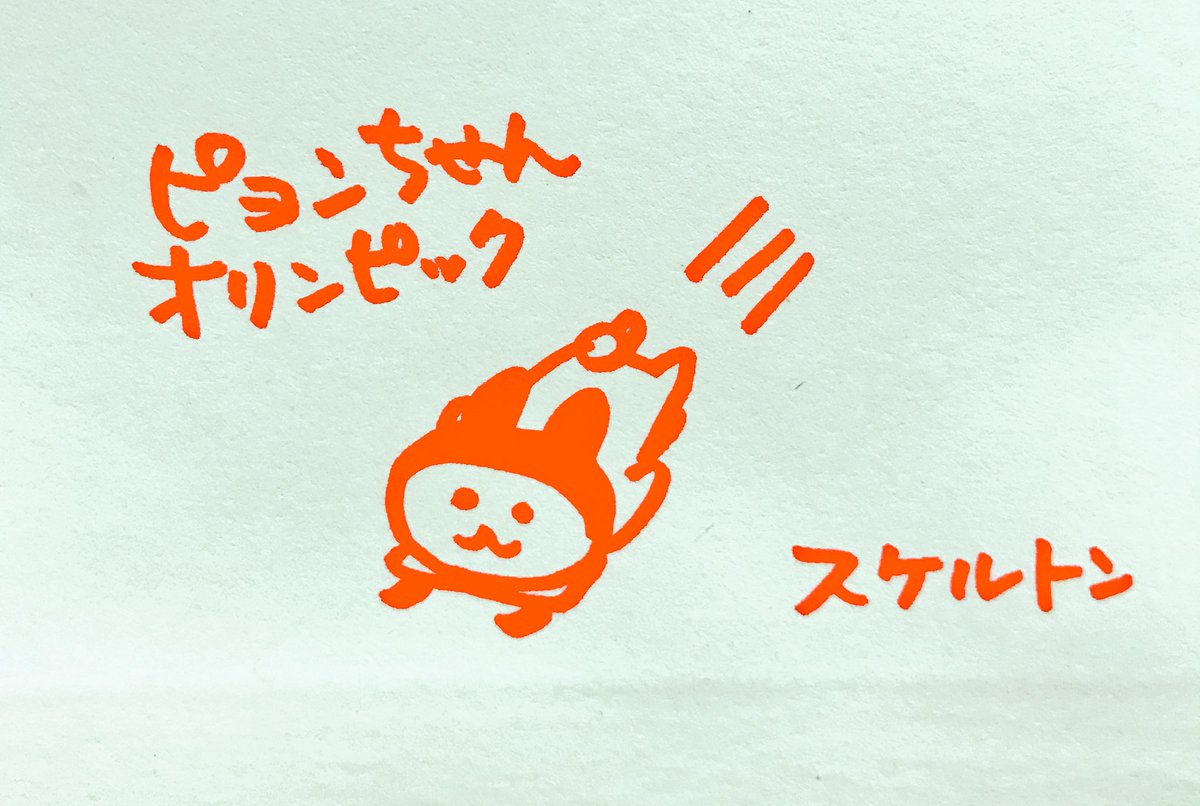 ピョンちゃん
オリンピック
スケルトン